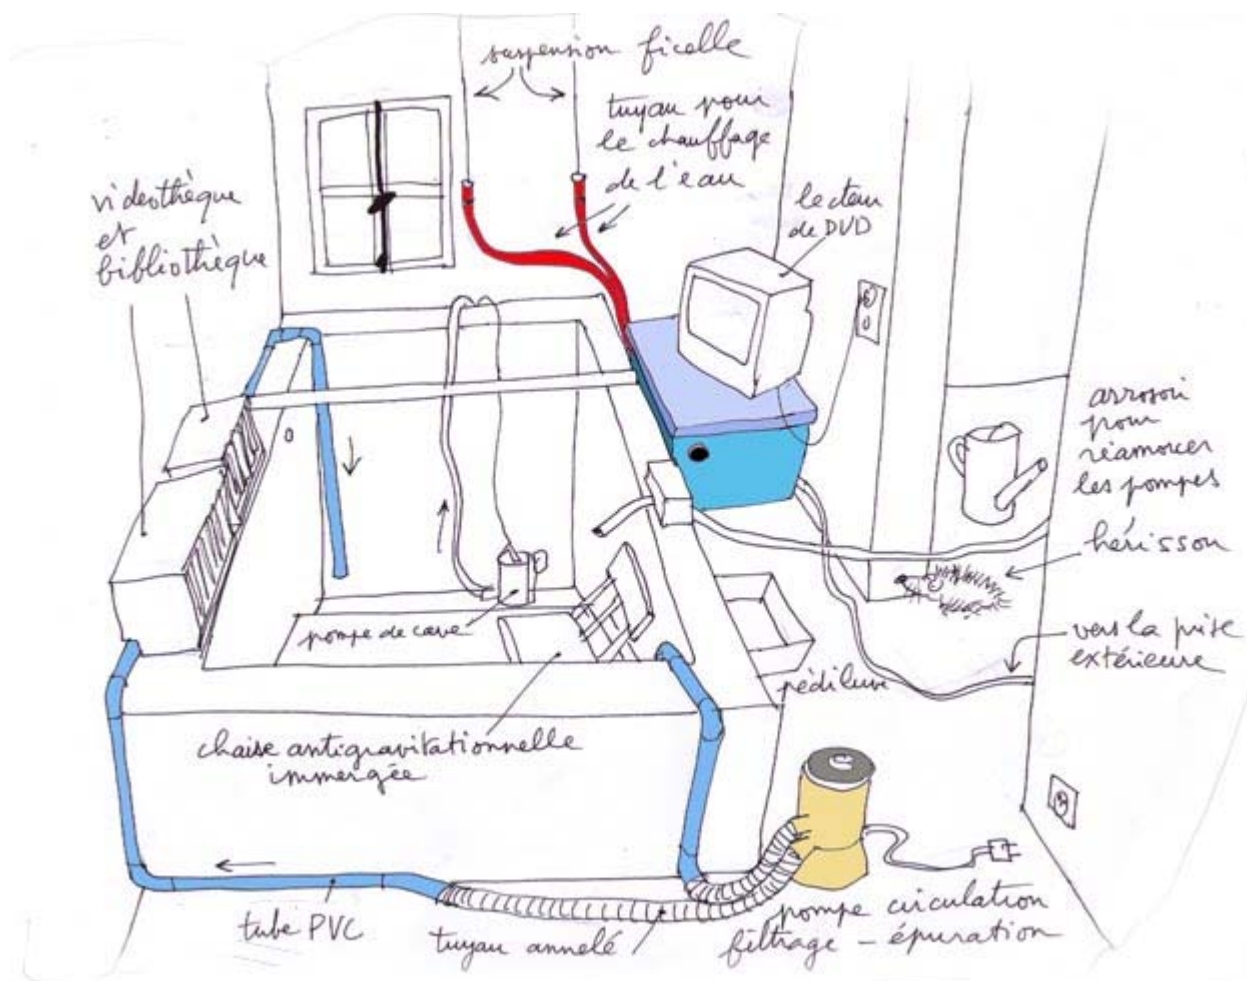 suspension ficelle
tuyau pour
le chauffage
de l'eau
videothèque
et
bibliothèque
lecteur
de DVD
arrosoir
pour
réamorcer
les pompes
hérisson
pompe de cave
vers la prise
extérieure
pédiluve
chaise antigravitationnelle
immergée
tube PVC
tuyau annelé
pompe circulation
filtrage - épuration